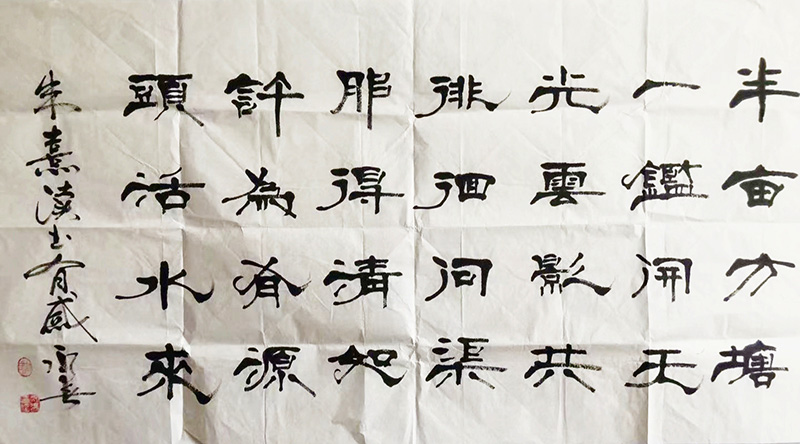 半亩方塘
一鑑開天
光雲影共
徘徊問渠
那得清如
許為有源
頭活水來
朱熹读书有感